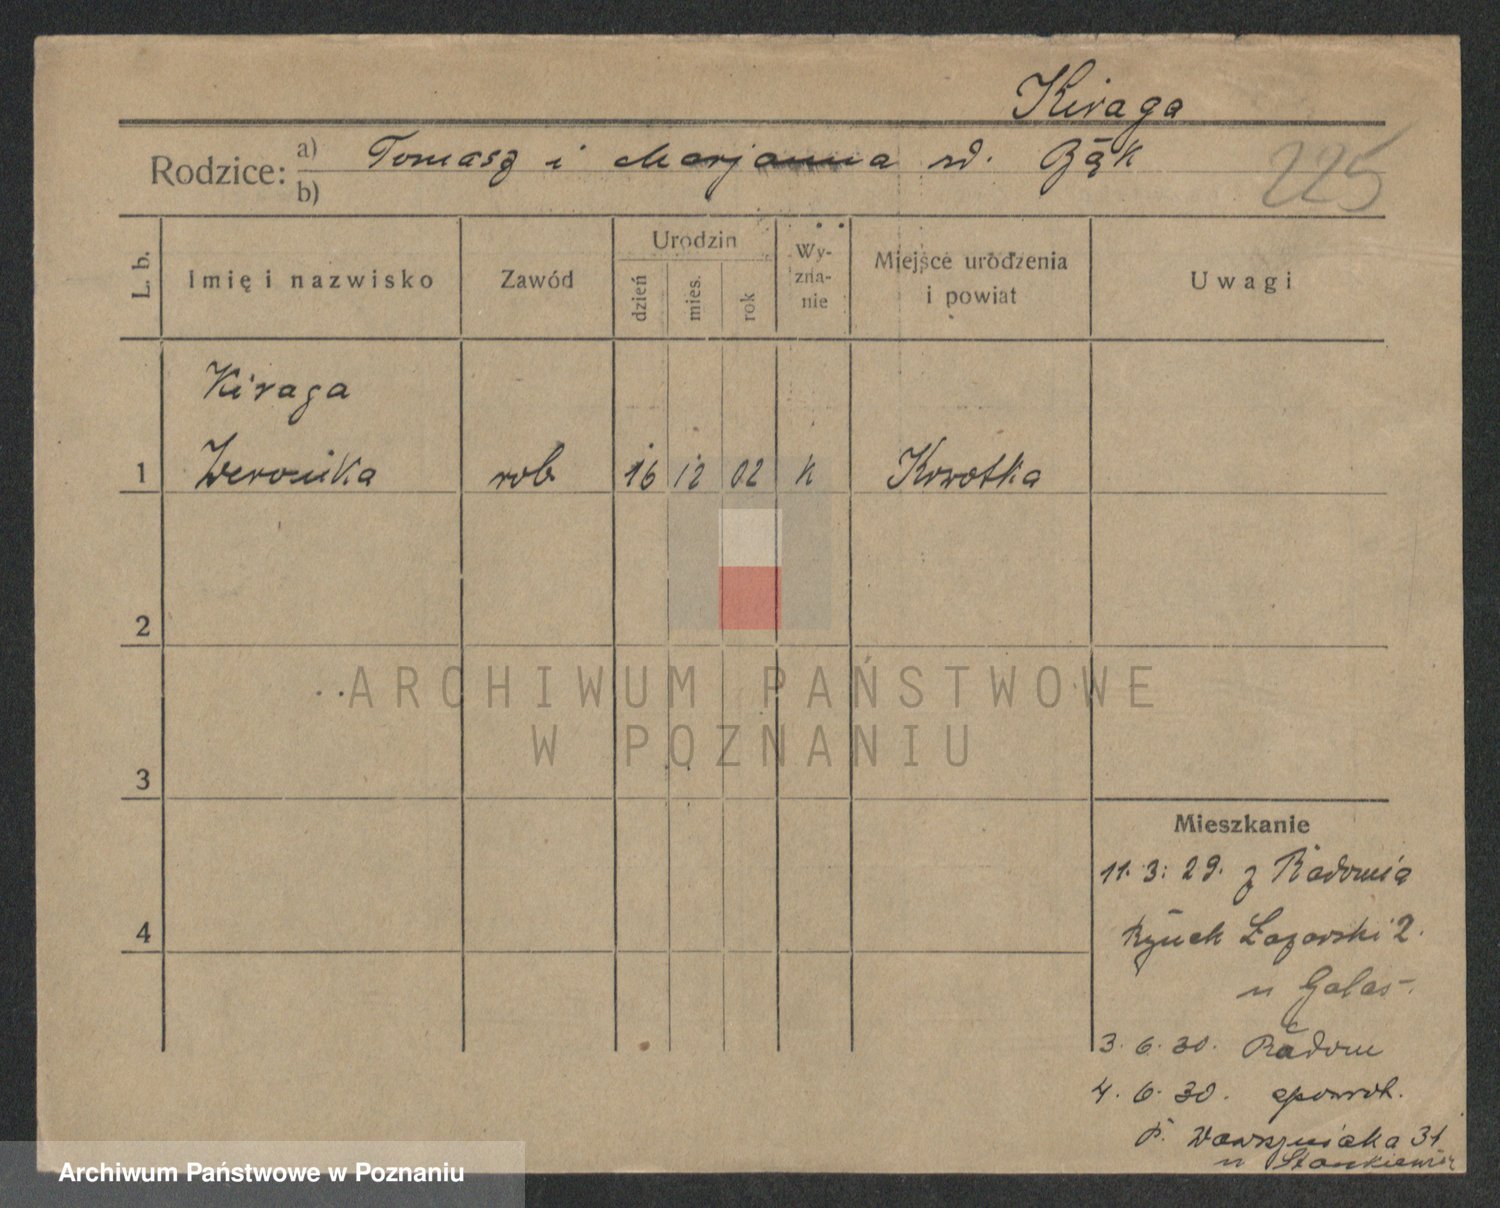 Kiraga
Rodzice: a) Tomasz i Marjanna rd. Bąk
b)
225
L. b.
Imię i nazwisko
Zawód
Urodzin
dzień
mies.
rok
Wy-
zna-
nie
Miejsce urodzenia
i powiat
Uwagi
Kiraga
1 Weronika rob 16 12 02 k Korotka
2
3
4
Mieszkanie
11. 3. 29. z Radomia
Rynek Łazarski 2.
u Galas.
3. 6. 30. Radom
4. 6. 30. spowrot.
P. Wawrzyniaka 31
u Stankiewicz
ARCHIWUM PAŃSTWOWE
W POZNANIU
Archiwum Państwowe w Poznaniu